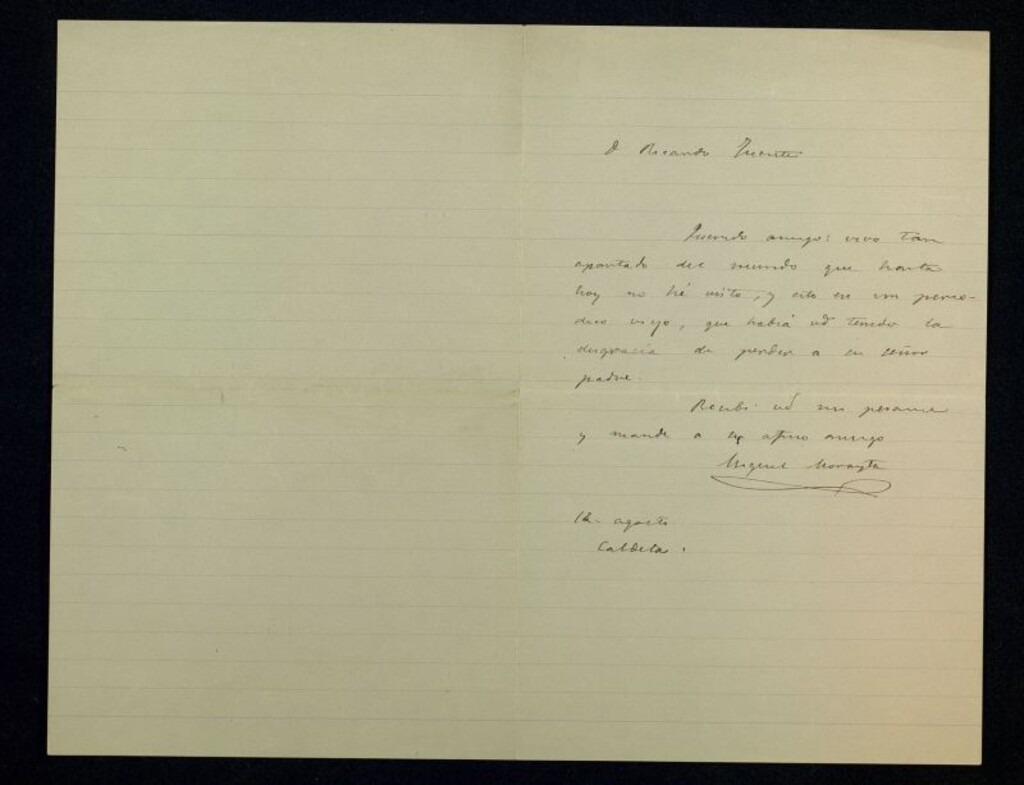 D Ricardo Vicente
Querido amigo: vivo tan
apartado del mundo que hasta
hoy no hé visto, y esto en un perio-
dico viejo, que habiá ud tenido la
desgracia de perder a su señor
padre.
Reciba ud mi pesame
y mande a su afmo amigo
Miguel Morayta
12 agosto
Caldelas.